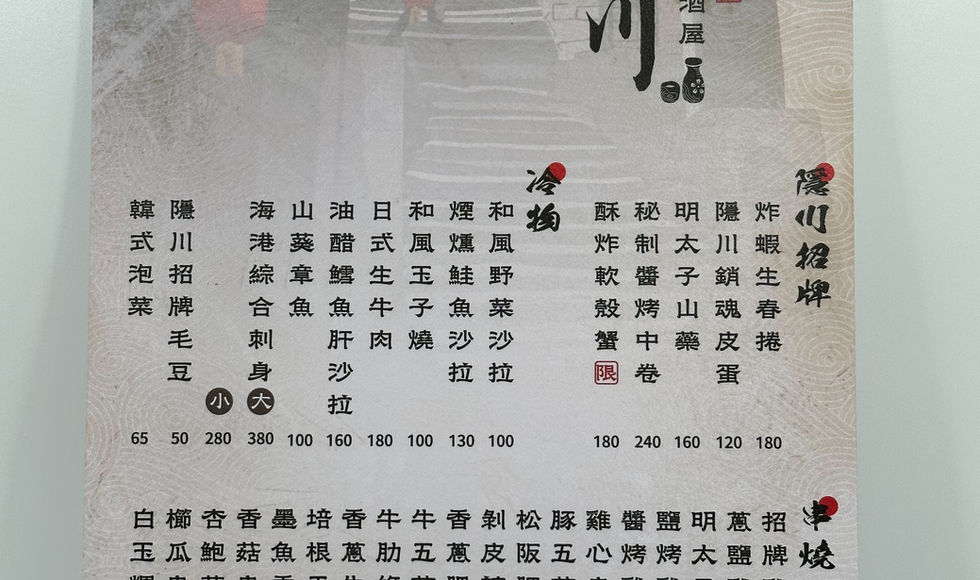 川
酒屋
隱川招牌
炸蝦生春捲
180
隱川銷魂皮蛋
120
明太子山藥
160
秘制醬烤中卷
240
酥炸軟殼蟹 限
180
冷物
和風野菜沙拉
100
煙燻鮭魚沙拉
130
和風玉子燒
100
日式生牛肉
180
油醋鱈魚肝沙拉
160
山葵章魚
100
海港綜合刺身 大
380
小
280
隱川招牌毛豆
50
韓式泡菜
65
串燒
招牌
蔥鹽
明太
鹽烤
醬烤
雞心
豚五
松阪
剝皮
香蔥
牛五
牛肋
香蔥
培根
墨魚
香菇
杏鮑
櫛瓜
白玉